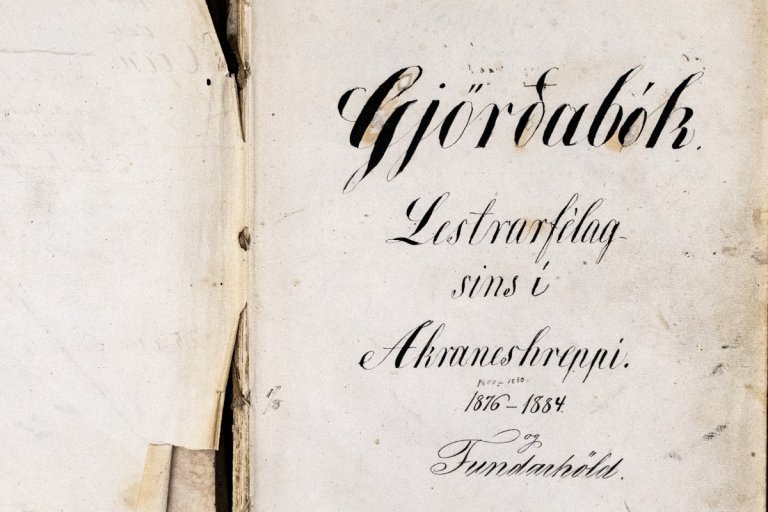 Gjörðabók.
Lestrarfélag-
sins í
Akraneshreppi.
1876 – 1884.
og
Fundarhöld.